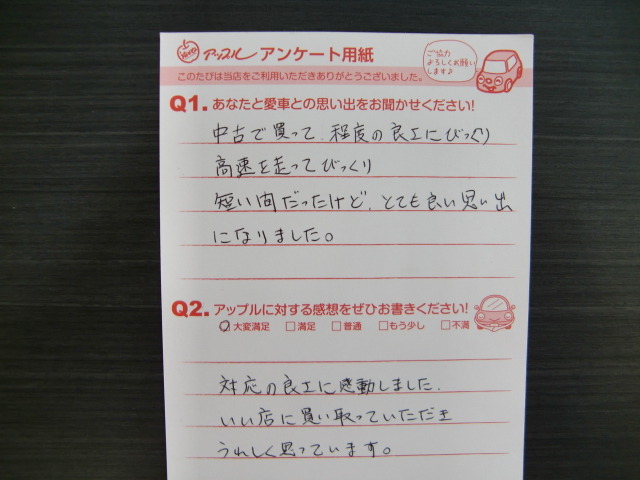 アップル アンケート用紙
ご協力
よろしくお願い
します♪
このたびは当店をご利用いただきありがとうございました。
Q1. あなたと愛車との思い出をお聞かせください!
中古で買って、程度の良エにびっくり
高速を走ってびっくり
短い間だったけど、とても良い思い出
になりました。
Q2. アップルに対する感想をぜひお書きください!
大変満足 □満足 □普通 □もう少し □不満
対応の良エに感動しました.
いい店に買い取っていただき
うれしく思っています。